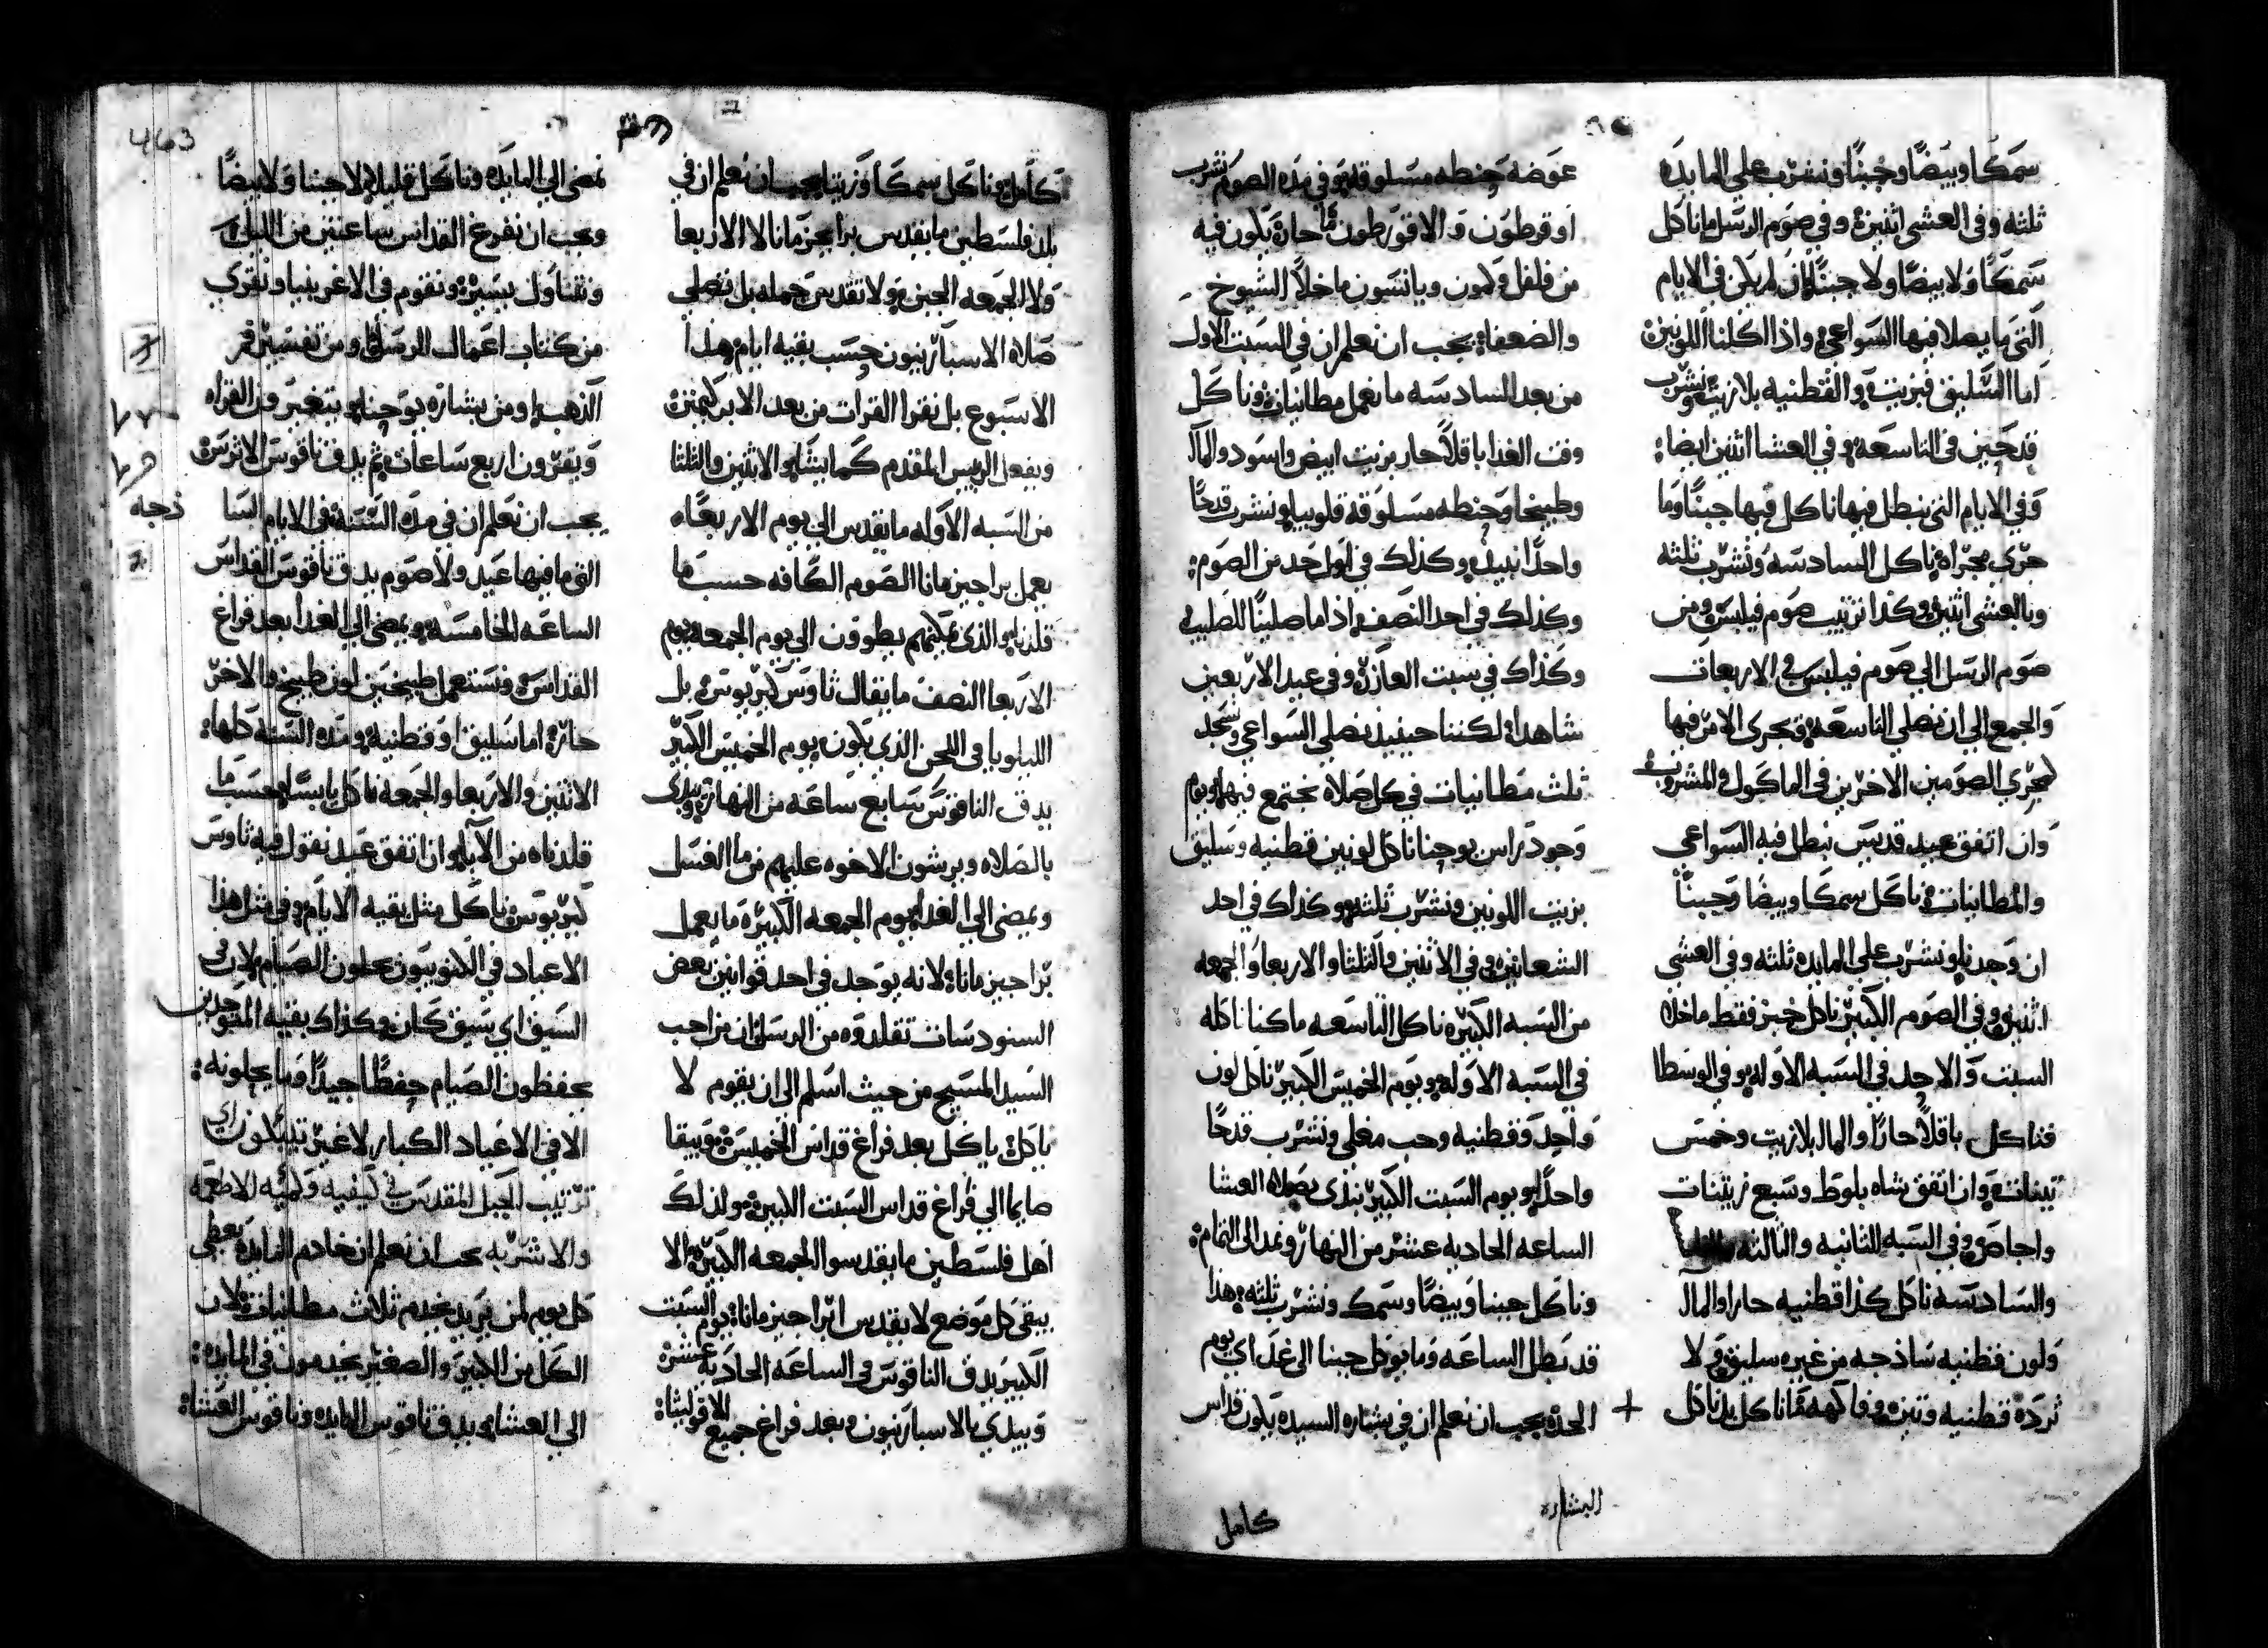 سمكا وبيضا وجبنا ونشرب على المايده
ثلثه وفى العشى اثنين وفي صوم الرسل ما ناكل
سمكا ولا بيضا ولا جبنا ان لم يكن في الايام
التى ما يصلا فيها السواعي واذا اكلنا اللونين
اما السليق فبزيت والقطنيه بلا زيت ونشرب
قدحين فى التاسعه وفي العشا اثنين ايضا
وفي الايام التى نبطل فيها ناكل فيها جبنا وما
جرى مجراه ناكل السادسه ونشرب ثلثه
وبالعشى اثنين وكذا ترتيب صوم فيلبس ومن
صوم الرسل الي صوم فيلبس في الاربعات
والجمع الي ان نصلي التاسعه يجري الامر فيها
لمجري الصومين الاخرين في الماكول والمشروب
وان اتفق عيد قديس نبطل فيه السواعي
والمطانيات وناكل سمكا وبيضا وجبنا
ان وجد ونشرب على المايده ثلثه وفي العشي
اثنين وفي الصوم الكبير ناكل خبز فقط ماخلا
السبت والاحد في السبه الاوله وفي الوسطا
فناكل باقلا حارا والمالا بلازيت وخمس
تينات وان اتفق شاه بلوط وسبع زيتنات
واجاص وفي السبه الثانيه والثالثه
والسادسه ناكل كذا قطنيه حارا والمالا
ولون قطنيه ساذجه من غير سليق ولا
ثردة قطنيه وتين وفاكهه ما ناكل بل ناكل
عوضه حنطه مسلوقه وفي هذه الصوم نشرب
او قرطون والاقورطون ما حارة يكون فيه
من فلفل وكمون ويانسون ماخلا الشيوخ
والضعفا يجب ان نعلم ان في السبت الاول
من بعد السادسه ما نعمل مطانيات وناكل
وقت الغدا باقلا حار بزيت ابيض واسود والمالا
وطبيخا وحنطه مسلوقة قلوبيا ونشرب قدحا
واحدا نبيد وكذلك في اول حد من الصوم
وكذلك في احد النصف اذا ما صلينا للصليب
وكذاك في سبت العازر وفى عيد الاربعين
شاهدا لكننا حينيذ نصلي السواعي ونسجد
ثلث مطانيات في كل صلاه نجتمع فيها ويوم
وجود راس يوحنا ناكل لونين قطنيه وسليق
بزيت اللونين ونشرب ثلثه وكذاك في احد
الشعانين وفي الاثنين والثلثا والاربعا والجمعه
من السبه الكبيره ناكل التاسعه ما كنا ناكله
في السبه الاوله ويوم الخميس الكبير ناكل لون
واحد وقطنيه وحب مغلي ونشرب قدحا
واحدا ويوم السبت الكبير نبتدى بصلاه العشا
الساعه الحاديه عشر من النهار ونمد الى التمام
وناكل جبنا وبيضا وسمك ونشرب ثلثه هذا
قد نبطل الساعه وما يوكل جبنا الى غد اي يوم
الحد يجب ان نعلم ان في بشاره السيده يكون قداس
البشاره
كامل
كامل وناكل سمكا وزيتا يجب ان نعلم ان في
بلد فلسطين ما يقدس براجيزمانا لا الاربعا
ولا الجمعه الجبن ولا تقديس جمله بل نصلي
صلاه الاسبارنيون حسب بقيه ايام هذا
الاسبوع بل نقرا القرات من بعد الابركيمنن
ويفعل الريس المقدم كما يشا والاثنين والثلثا
من السبه الاوله ما يقدس الي يوم الاربعاه
يعمل براجيزمانا الصوم الكافه حسب ما
قلنا والذى يمكنهم يطوون الي يوم الجمعه يوم
الاربعا النصف ما يقال ثاوس كيريوس بل
الليلويا في اللحن الذي يكون يوم الخميس الكبير
يدق الناقوس سابع ساعه من النهار ويبتدى
بالصلاه ويرشون الاخوه عليهم من ما الغسل
ويمضى الي الغدا يوم الجمعه الكبيرة ما يعمل
براجيزمانا لانه يوجد في احد قوانين بعض
السنودسات تقلدوه من الرسل ان من احب
السيد المسيح من حيث اسلم الى ان يقوم لا
ياكل ياكل بعد فراغ قداس الخميس ويبقا
صايما الي فراغ قداس السبت الكبير ولذلك
اهل فلسطين ما يقدسوا الجمعه الكبيره الا
يبقى كل موضع لا يقدس ابراجيزمانا يوم السبت
الكبير يدق الناقوس في الساعه الحاديه عشرة
ويبتدي بالاسبارنيون وبعد فراغ جميع الافوليثا
463
نمضى الي المايده وناكل قليلا لا جبنا ولا بيضا
ويجب ان نفرغ القداس ساعتين من الليل
ونتناول يسير ونقوم في الاغريبنيا ونقري
من كتاب اعمال الرسل ومن تفسير فم
الذهب ومن بشاره يوحنا يتغير فى القراه
ويقرون اربع ساعات ثم يدق ناقوس الاثرس
يجب ان نعلم ان في هذه السنة في الايام السا
ذجه
التى ما فيها عيد ولا صوم يدق ناقوس القداس
الساعه الخامسه ويمضى الي الغدا بعد فراغ
القداس ونستعمل طبيخين لون طبيخ والاخر
حار اما سليق او قطنيه وهذه السنه كلها
الاثنين والاربعا والجمعه ناكل يابسا حسب ما
قلناه من الالايا وان اتفق عيد نقول فيه ثاوس
كيريوس ناكل مثل بقيه الايام وفي مثل هذا
الاعياد في الكنوبيون يحلون الصيام لا في
السيق اي سيق كان وكذاك بقيه المتوحدين
يحفظون الصيام حفظا جيدا وما يحلونه
الا في الاعياد الكبار لا غير تيبيكون اي
ترتيب الجبل المقدس في كيفيه وكميه الاطعمه
والاشربه يجب ان نعلم ان خادم المايده يعطي
كل يوم لمن يريد يخدم ثلاث مطانيات لان
الكل من الكبير والصغير يخدمون في المايده
الى العشا ويدق ناقوس المايده وناقوس العشاه